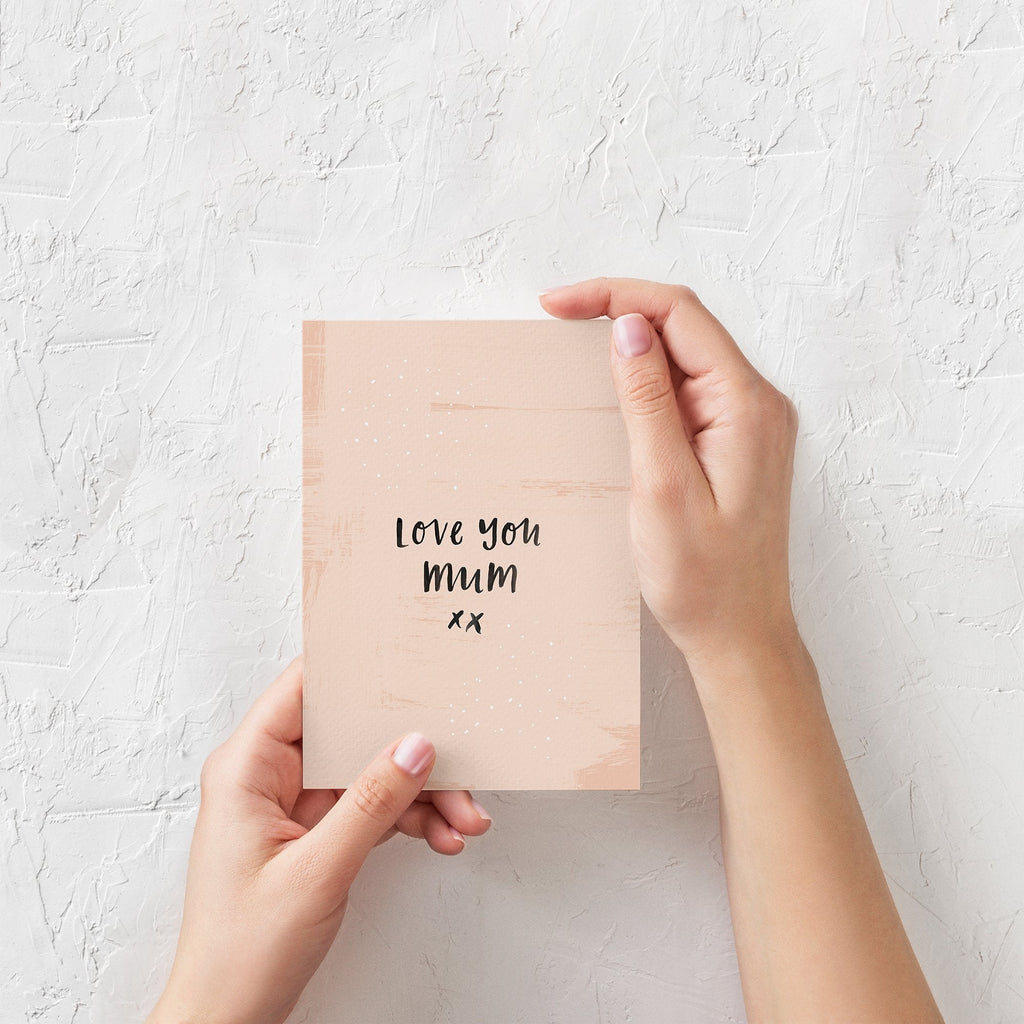 Love you
mum
xx